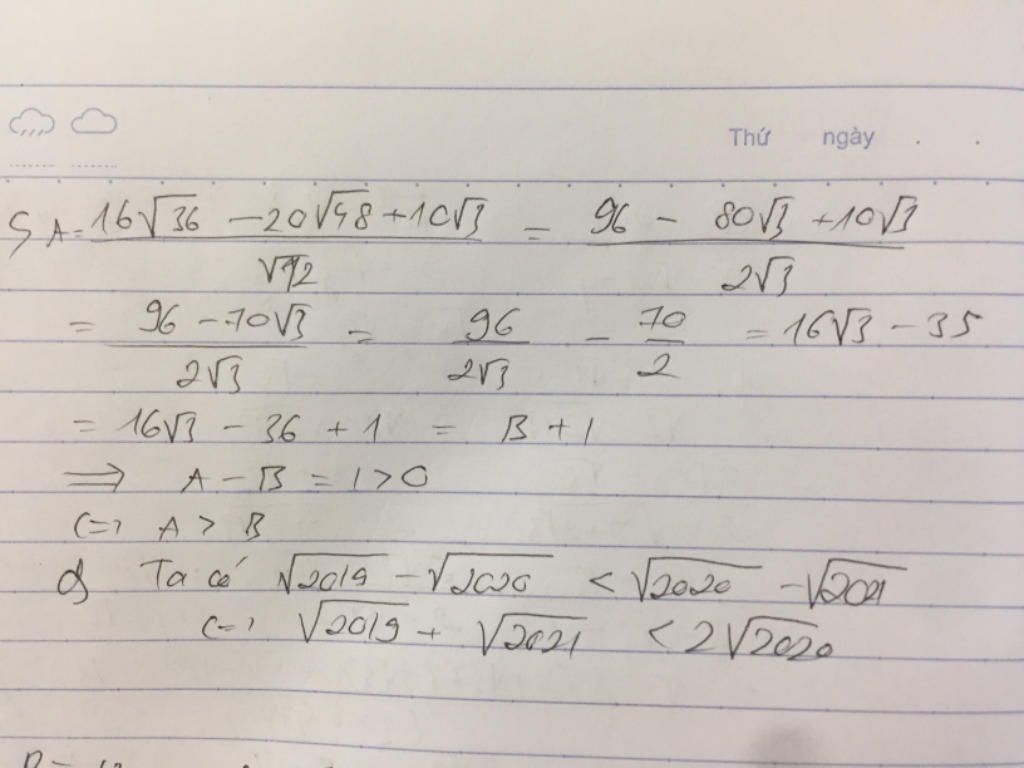 Thứ ngày . .
S A = \frac{16\sqrt{36} - 20\sqrt{48} + 10\sqrt{3}}{\sqrt{12}} = \frac{96 - 80\sqrt{3} + 10\sqrt{3}}{2\sqrt{3}}
= \frac{96 - 70\sqrt{3}}{2\sqrt{3}} = \frac{96}{2\sqrt{3}} - \frac{70}{2} = 16\sqrt{3} - 35
= 16√3 - 36 + 1 = B + 1
⟹ A - B = 1 > 0
(=) A > B
d) Ta có √2019 - √2020 < √2020 - √2021
(=) √2019 + √2021 < 2√2020